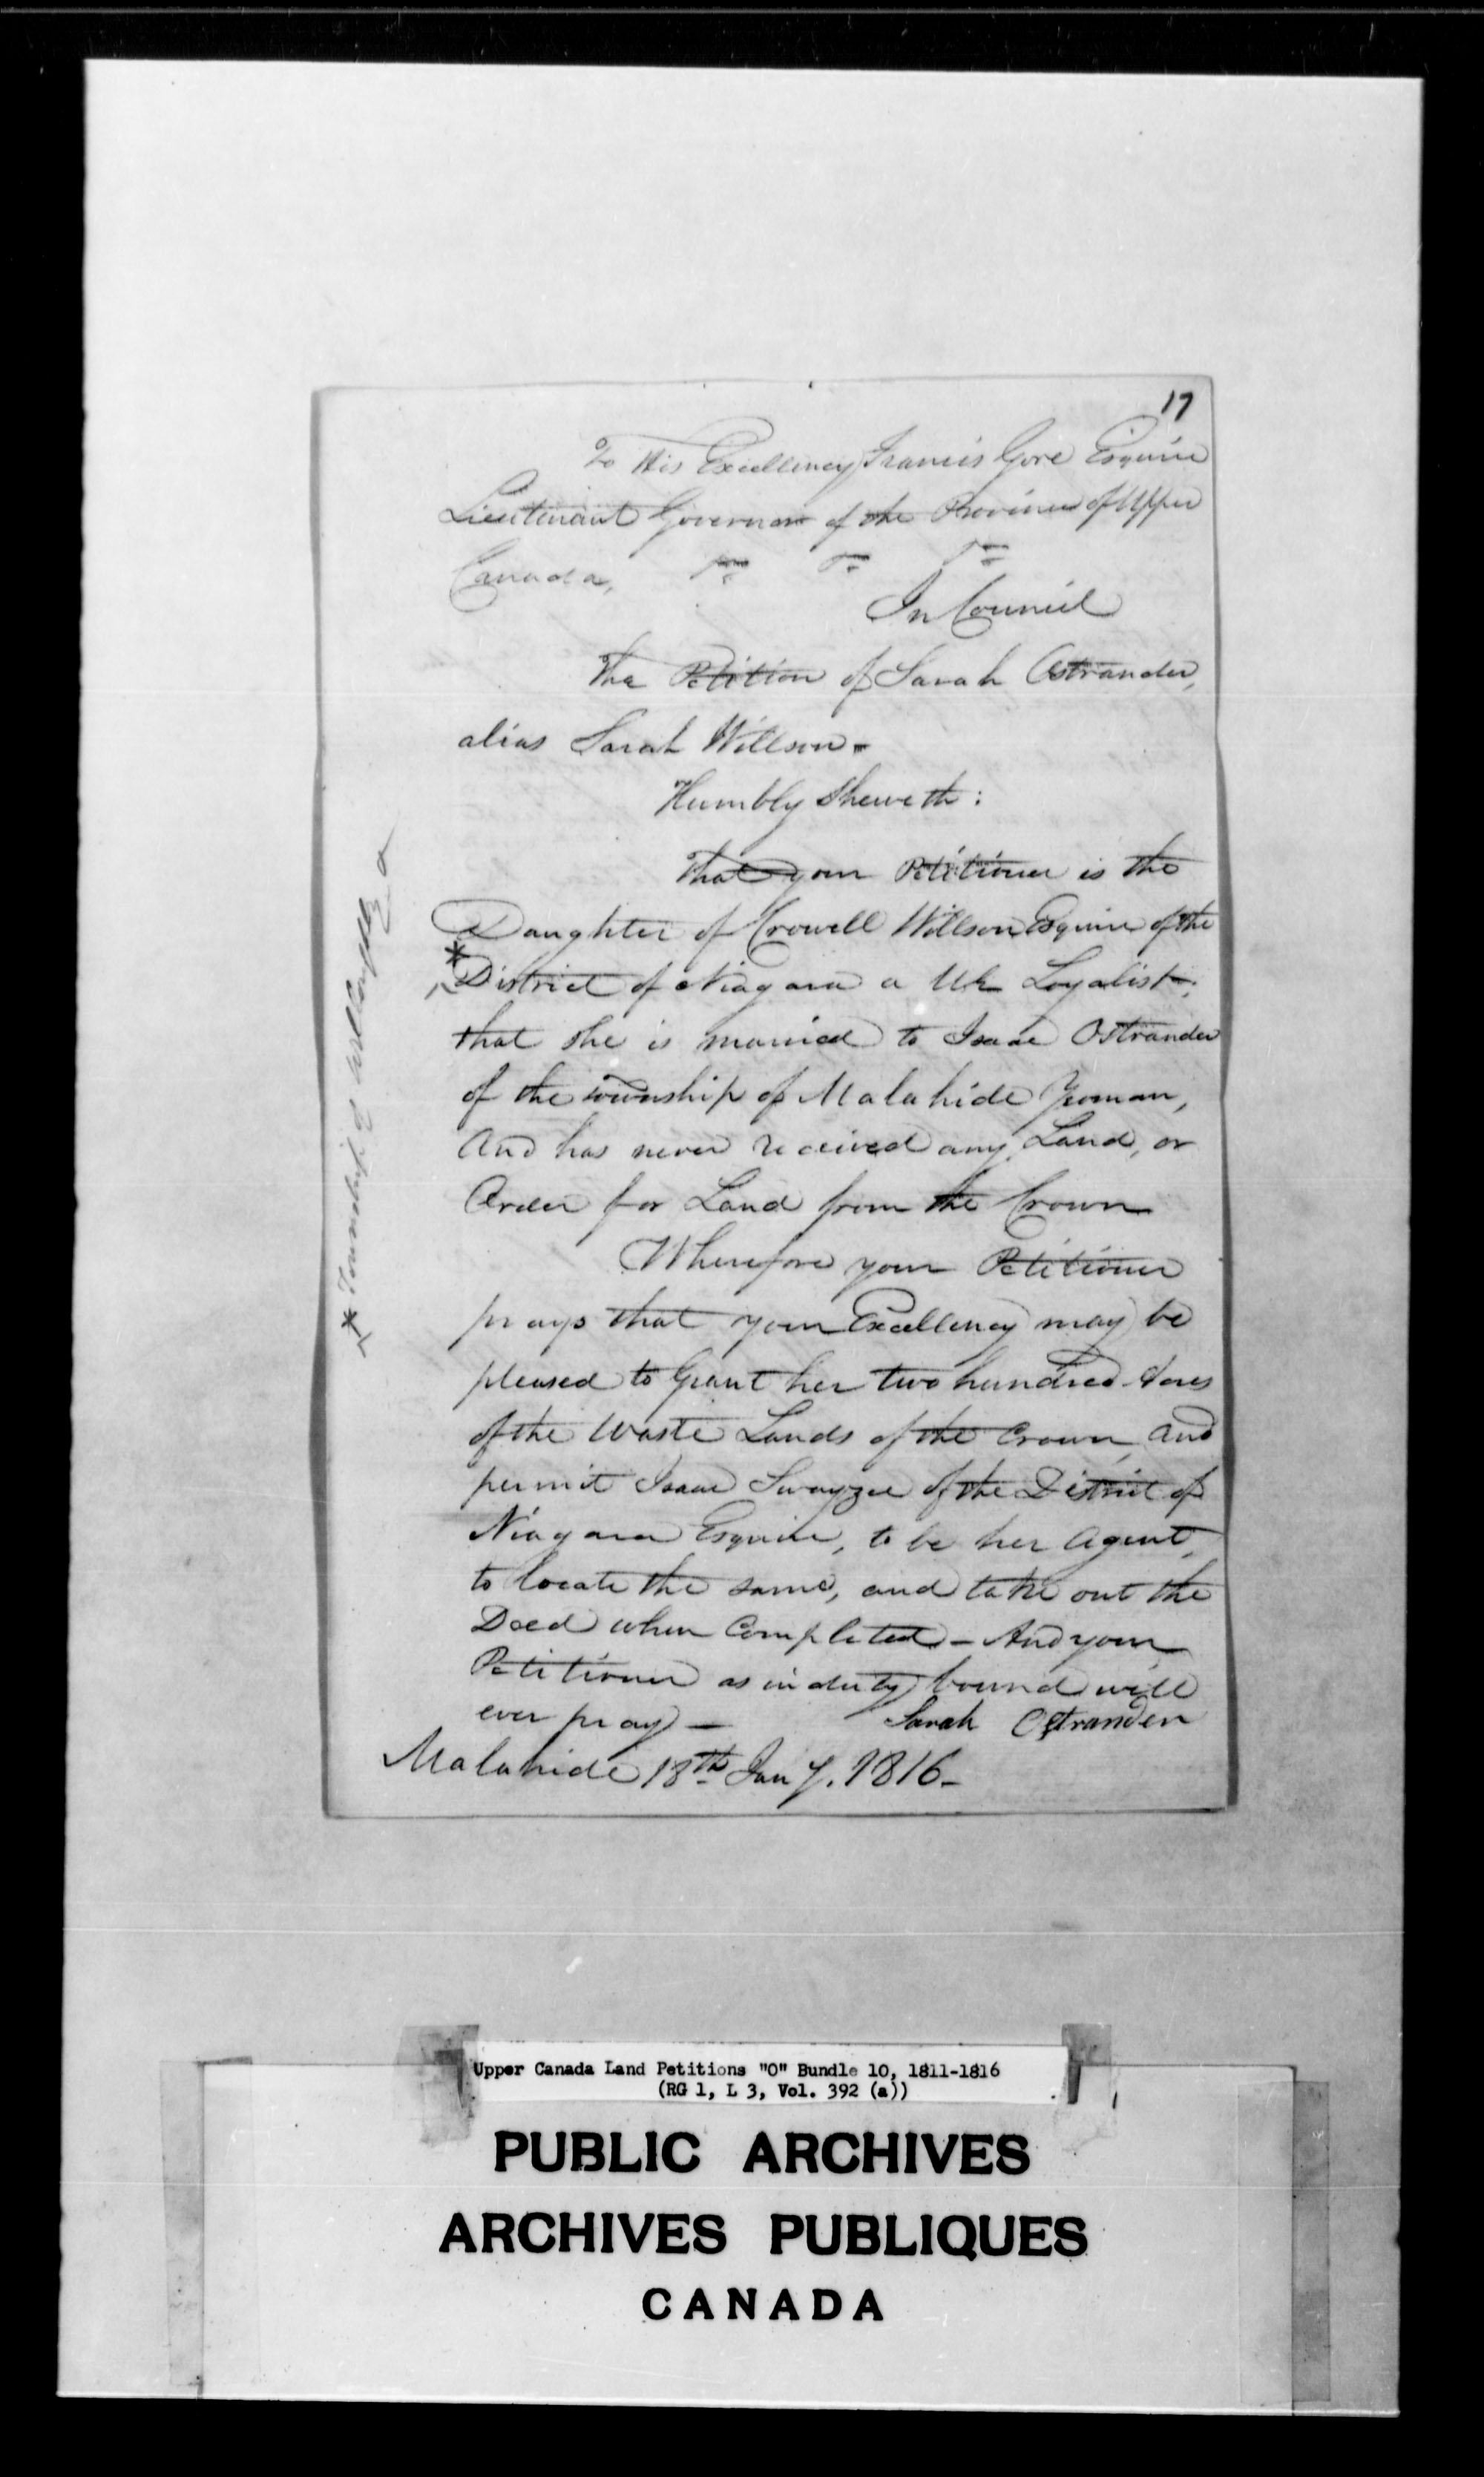 17
To His Excellency Francis Gore Esquire
Lieutenant Governor of the Province of Upper
Canada, &c &c &c
In Council
The Petition of Sarah Ostrander,
alias Sarah Willson-
Humbly Sheweth:
That your Petitioner is the
Daughter of Crowell Willson Esquire of the
* District of Niagara a UE Loyalist,
that she is married to Isaac Ostrander
of the Township of Malahide Yeoman,
And has never received any Land, or
Order for Land from the Crown
Wherefore your Petitioner
prays that your Excellency may be
pleased to Grant her two hundred Acres
of the Waste Lands of the Crown, and
permit Isaac Swayzee of the District of
Niagara Esquire, to be her Agent,
to locate the same, and take out the
Deed when Completed - And your
Petitioner as in duty bound will
ever pray —
Sarah Ostrander
Malahide 18th Jany. 1816-
* Township of Willoughby
Upper Canada Land Petitions "O" Bundle 10, 1811-1816
(RG 1, L 3, Vol. 392 (a))
PUBLIC ARCHIVES
ARCHIVES PUBLIQUES
CANADA